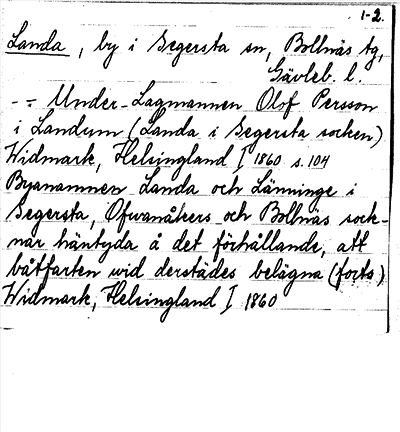 1-2.
Landa, by i Segersta sn, Bollnäs tg,
Gävleb. l.
- = Under-Lagmannen Olof Persson
i Landum (Landa i Segersta socken)
Widmark, Helsingland I 1860 s. 104
Byanamnen Landa och Länninge i
Segersta, Ofvanåkers och Bollnäs sock-
nar häntyda å det förhållande, att
båtfarten wid derstädes belägna (forts)
Widmark, Helsingland I 1860